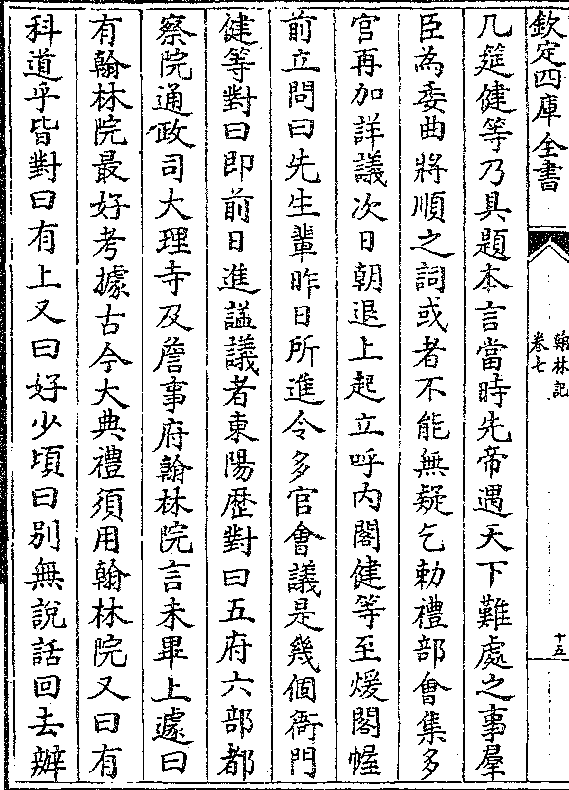 欽定四庫全書
翰林記
卷七
十五
几筵健等乃具題本言當時先帝遇天下難處之事羣
臣為委曲將順之詞或者不能無疑乞勅禮部會集多
官再加詳議次日朝退上起立呼内閣健等至煖閣幄
前立問曰先生輩昨日所進令多官會議是幾個衙門
健等對曰即前日進諡議者東陽歴對曰五府六部都
察院通政司大理寺及詹事府翰林院言未畢上遽曰
有翰林院最好考據古今大典禮須用翰林院又曰有
科道乎皆對曰有上又曰好少頃曰别無說話回去辦